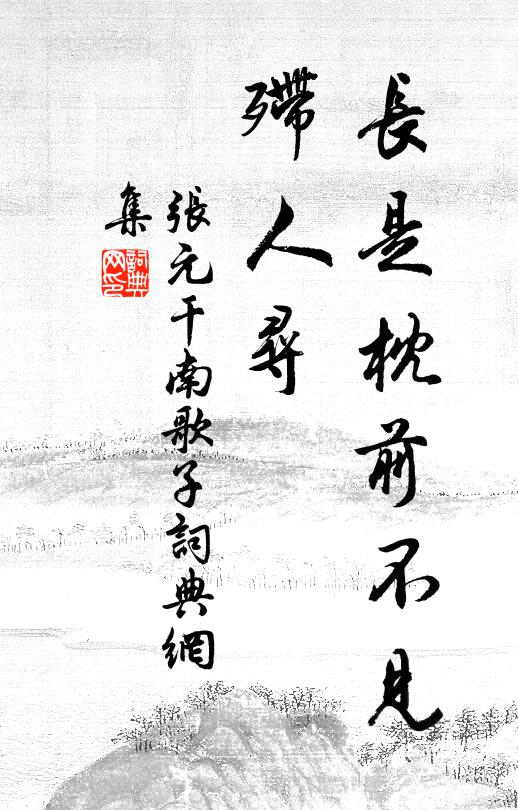 長是枕前不見
殢人尋
張元干南歌子詞典網
集
詞典网印